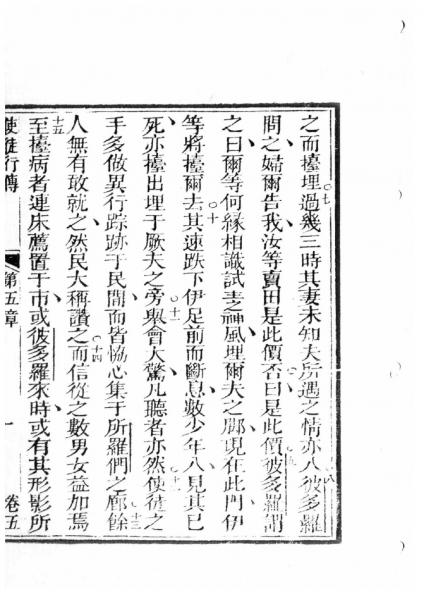 之而擡埋過幾三時其妻未知夫所遇之情亦入彼多羅
問之婦爾告我汝等賣田是此價否曰是此價彼多羅謂
之曰爾等何緣相識試主神風埋爾夫之脚現在此門伊
等將擡爾去其速跌下伊足前而斷息數少年入見其已
死亦擡出埋于厥夫之旁舉會大驚凡聽者亦然使徒之
手多做異行踪跡于民間而皆恊心集于所羅們之廊餘
人無有敢就之然民大稱讚之而信從之數男女益加焉
至擡病者連床薦置于市或彼多羅來時或有其形影所
使徒行傳 第五章 一 卷五
七
八
九
十
十一
十二
十三
十四
十五